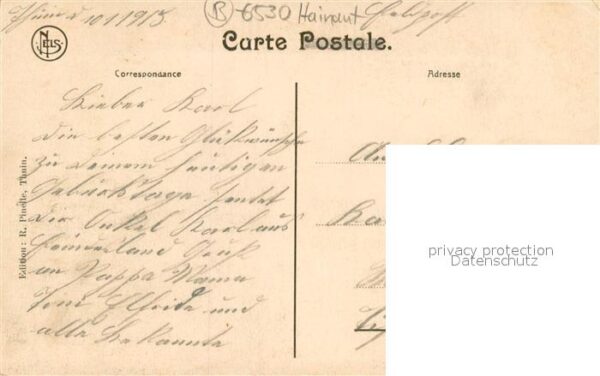 Thuin d 10.1.1915 (B) 6530 Hainaut Feldpost
NELS
Carte Postale.
Correspondance
Adresse
Lieber Karl
die besten Glükwünsche
zu deinem heutigen
Geburtstage sendet
dir Onkel Karl aus
Feindesland Gruß
an Pappa Mama
Elfride und
alle Bekannte
Edition: R. Pinelle, Thuin.
privacy protection
Datenschutz